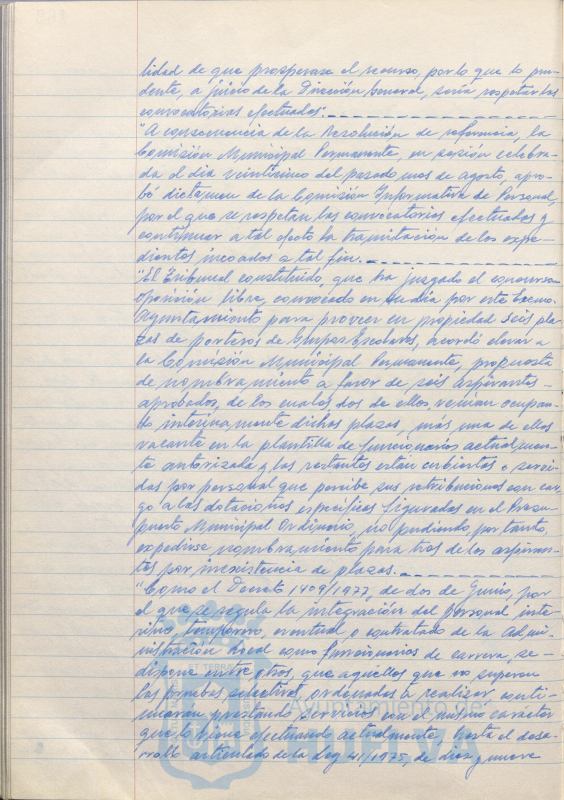 lidad de que prosperase el recurso, por lo que lo pru-
dente, a juicio de la Dirección General, sería respetar las
convocatorias efectuadas".
"A consecuencia de la Resolución de referencia, la
Comisión Municipal Permanente, en sesión celebra-
da el día veintiuno del pasado mes de agosto, apro-
bó dictamen de la Comisión Informativa de Personal,
por el que se respetan las convocatorias efectuadas y
continuar a tal efecto la tramitación de los expe-
dientes incoados a tal fin.
"El Tribunal constituido, que ha juzgado el concurso-
oposición libre, convocado en su día por este Excmo.
Ayuntamiento para proveer en propiedad seis pla-
zas de porteros de Grupos Escolares, acordó elevar a
la Comisión Municipal Permanente, propuesta
de nombramiento a favor de seis aspirantes
aprobados, de los cuales dos de ellos, venían ocupan-
do interinamente dichas plazas, más una de ellas
vacante en la plantilla de funcionarios actualmen-
te autorizada y las restantes están cubiertas o servi-
das por personal que percibe sus retribuciones con car-
go a las dotaciones específicas figuradas en el Presu-
puesto Municipal Ordinario, no pudiendo por tanto,
expedirse nombramiento para tres de los aspiran-
tes por inexistencia de plazas.
"Como el Decreto 1409/1977, de dos de Junio, por
el que se regula la integración del personal inte-
rino, temporero, eventual o contratado de la Admi-
nistración Local como funcionarios de carrera, se
dispone entre otros, que aquellos que no superen
las pruebas selectivas, ordenadas a realizar conti-
nuaran prestando servicios con el mismo carácter
que lo viene efectuando actualmente, hasta el desa-
rrollo articulado de la Ley 41/1975, de diez y nueve
Ayuntamiento de
HUELVA